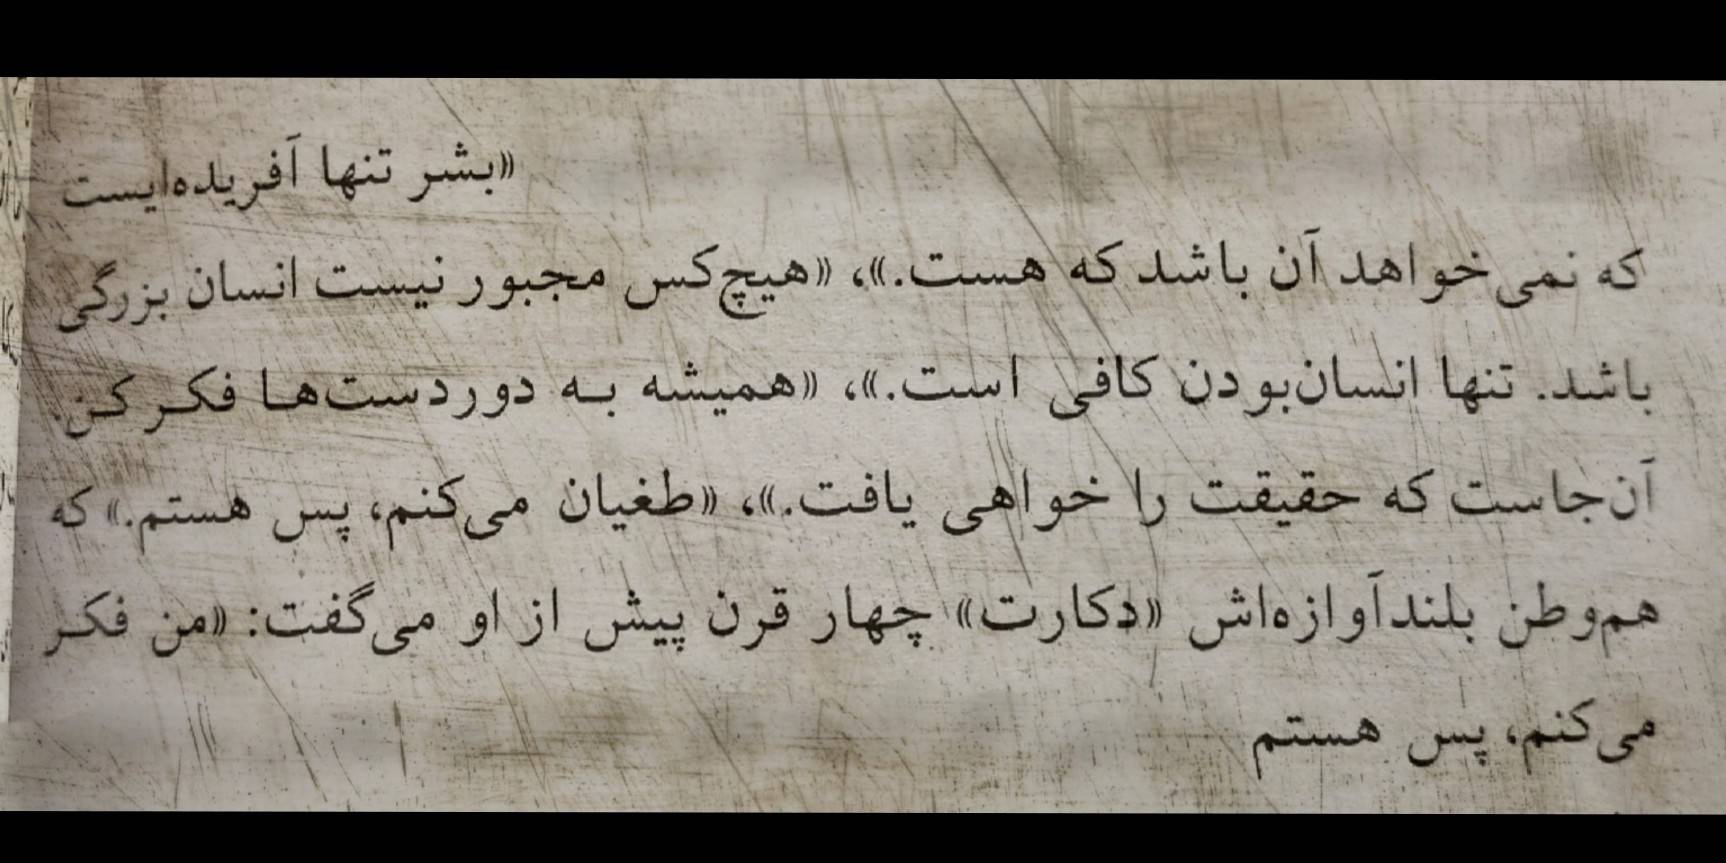 «بشر تنها آفریده‌ایست
که نمی‌خواهد آن باشد که هست.»، «هیچ‌کس مجبور نیست انسان بزرگی
باشد. تنها انسان‌بودن کافی است.»، «همیشه به دوردست‌ها فکر کن.
آن‌جاست که حقیقت را خواهی یافت.»، «طغیان می‌کنم، پس هستم.» که
هم‌وطن بلندآوازه‌اش «دکارت» چهار قرن پیش از او می‌گفت: «من فکر
می‌کنم، پس هستم